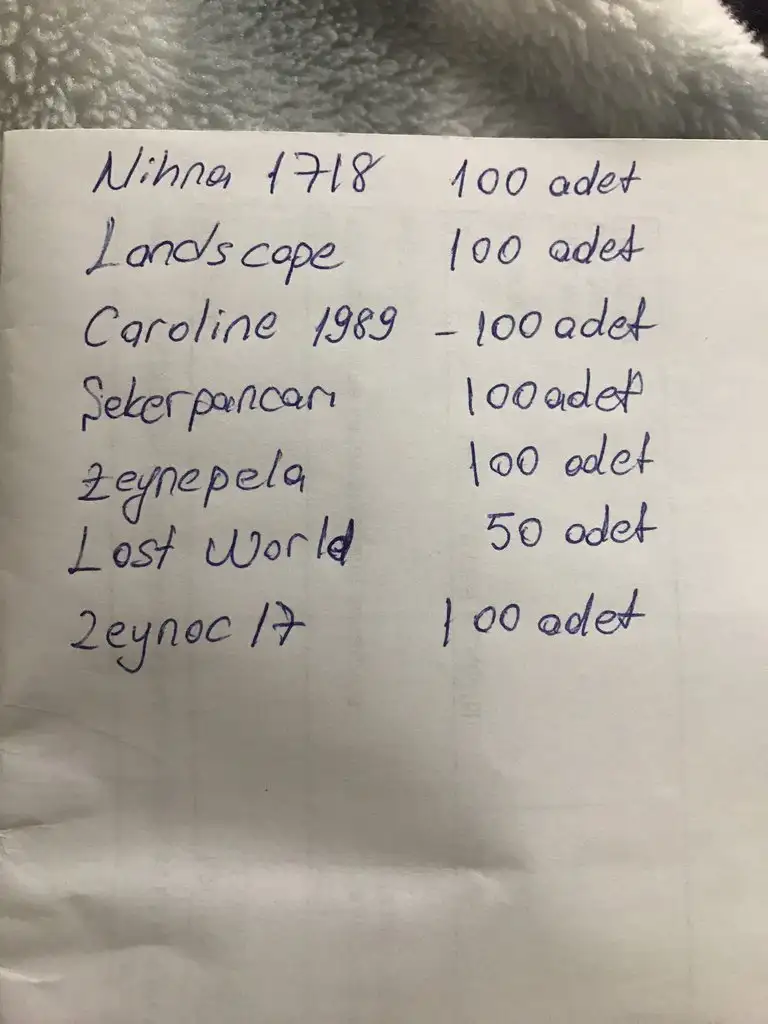 Nihna 1718 100 adet
Landscape 100 adet
Caroline 1989 - 100 adet
Şekerpancarı 100 adet
Zeynepela 100 adet
Lost World 50 adet
Zeynoc 17 100 adet